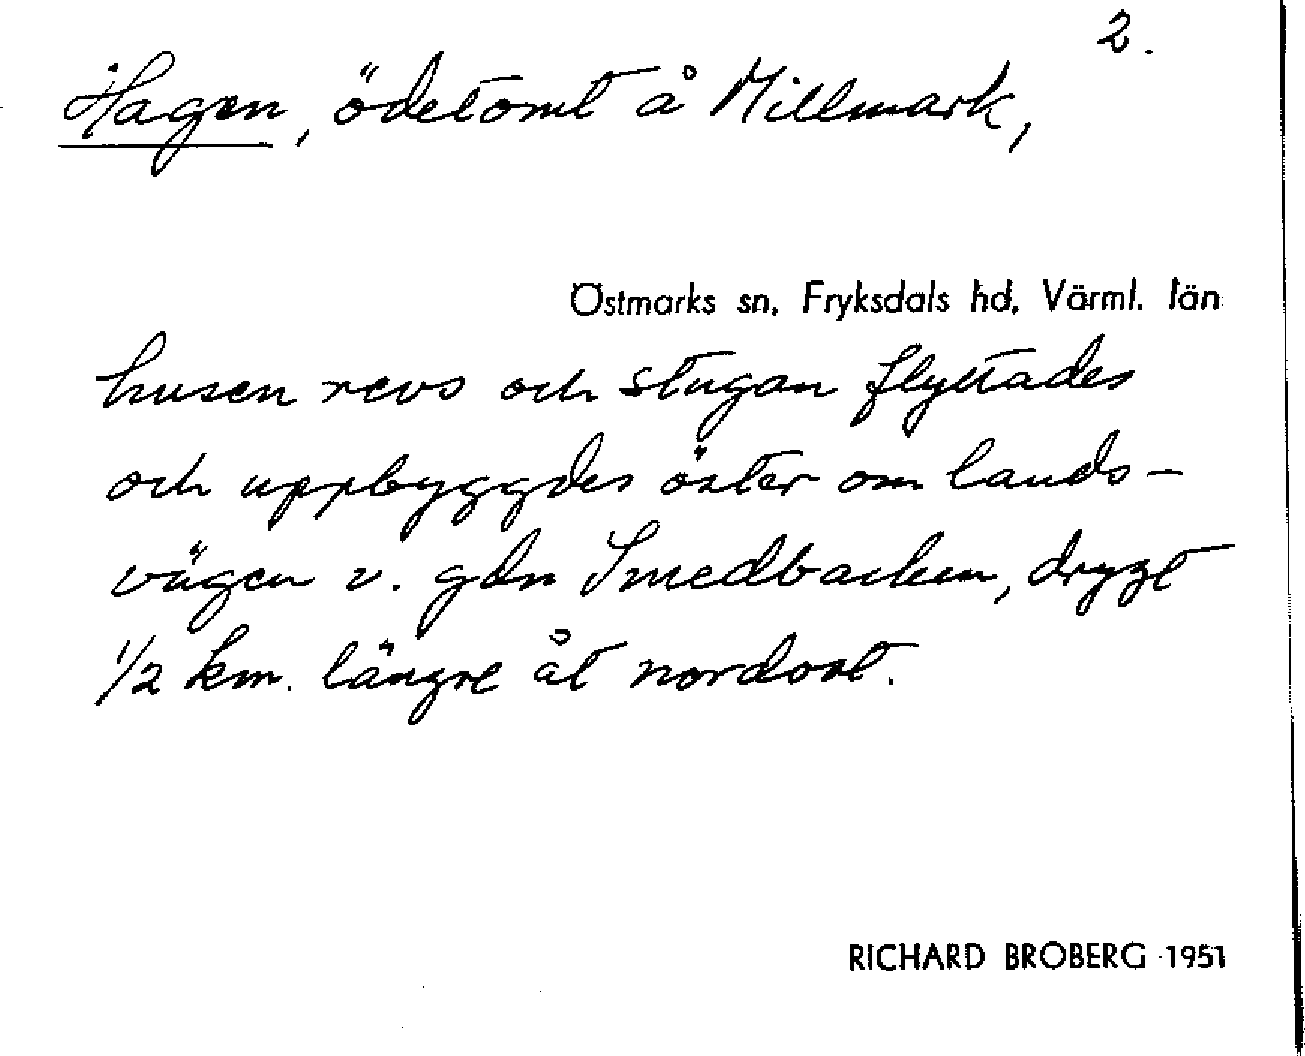 2.
Hagen, ödetomt å Millmark,
Östmarks sn, Fryksdals hd, Värml. län
husen revs och stugan flyttades
och uppbyggdes öster om lands-
vägen v. gdn Smedbacken, drygt
1/2 km. längre åt nordost.
RICHARD BROBERG 1951